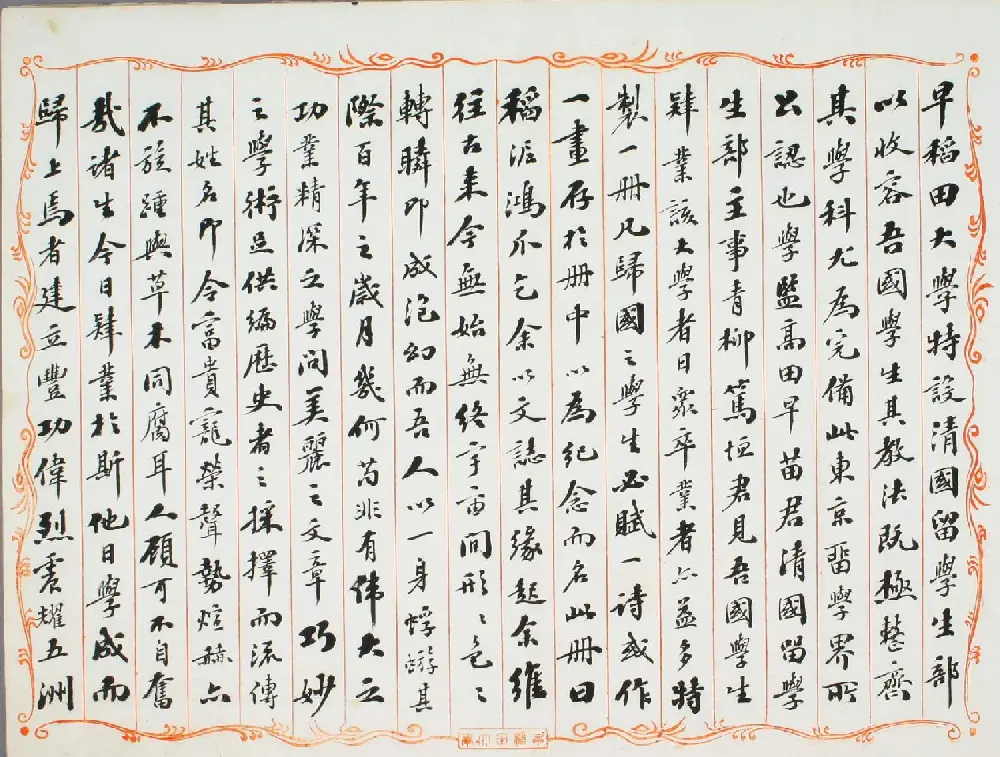 早稻田大學特設清國留學生部
以收容吾國學生其教法既極整齊
其學科尤為完備此東京留學界所
公認也學監高田早苗君清國留學
生部主事青柳篤恒君見吾國學生
肄業該大學者日衆卒業者亦益多特
製一冊凡歸國之學生必賦一詩或作
一畫存於冊中以為紀念而名此冊曰
稻泥鴻爪乞余以文誌其緣起余維
往古來今無始無終宇宙間形々色々
轉瞬即成泡幻而吾人以一身蜉蝣其
際百年之歲月幾何苟非有偉大之
功業精深之學問美麗之文章巧妙
之學術足供編歷史者之採擇而流傳
其姓名即令富貴寵榮聲勢烜赫亦
不旋踵與草木同腐耳人顧可不自奮
哉諸生今日肄業於斯他日學成而
歸上焉者建立豐功偉烈震耀五洲
早稻田大學